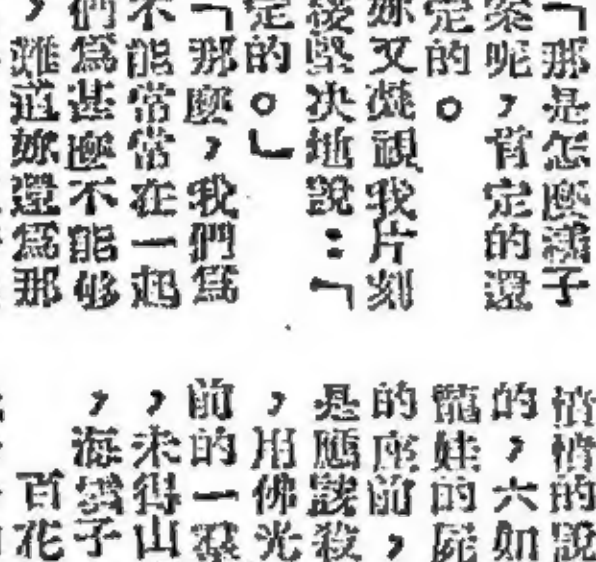 「那是怎麼
案呢，肯定的還
定的。
妳又凝視我片刻
後堅決地說：「
定的。」
「那麼，我們為
不能常常在一起
們為甚麼不能够
，難道妳還為那
悄悄的說
的，六如
龍娃的屍
的座前，
是應該殺
，用佛光
前的一羣
，未得山
，海幾子
百花